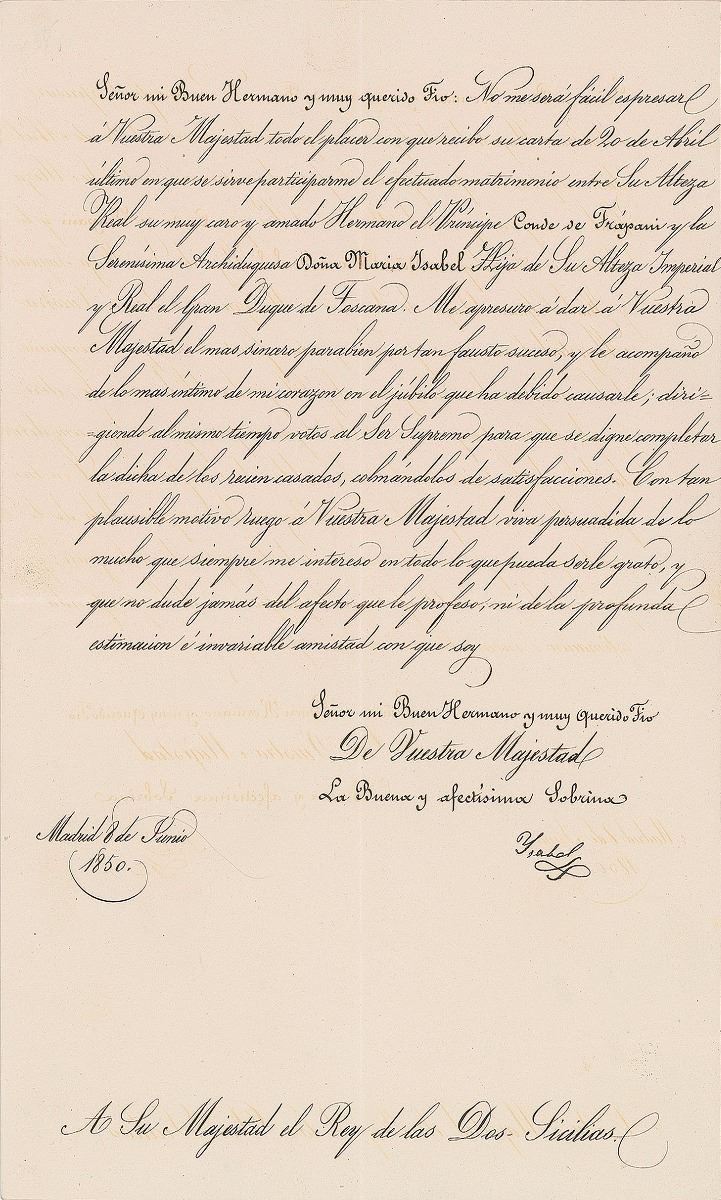 Señor mi Buen Hermano y muy querido Tio: No me será fácil espresar
á Vuestra Majestad todo el placer con que recibo su carta de 20 de Abril
último en que se sirve participarme el efectuado matrimonio entre Su Alteza
Real su muy caro y amado Hermano el Príncipe Conde de Trápani y la
Serenísima Archiduquesa Doña Maria Isabel Hija de Su Alteza Imperial
y Real el Gran Duque de Toscana. Me apresuro á dar á Vuestra
Majestad el mas sincero parabien por tan fausto suceso, y le acompaño
de lo mas íntimo de mi corazon en el júbilo que ha debido causarle; diri=
=giendo al mismo tiempo votos al Ser Supremo para que se digne completar
la dicha de los recien casados, colmándolos de satisfacciones. Con tan
plausible motivo ruego á Vuestra Majestad viva persuadida de lo
mucho que siempre me intereso en todo lo que pueda serle grato, y
que no dude jamás del afecto que le profeso, ni de la profunda
estimacion é invariable amistad con que soy
Señor mi Buen Hermano y muy querido Tio
De Vuestra Majestad
La Buena y afectísima Sobrina
Madrid 8 de Junio
1850.
Ysabel
A Su Majestad el Rey de las Dos Sicilias.